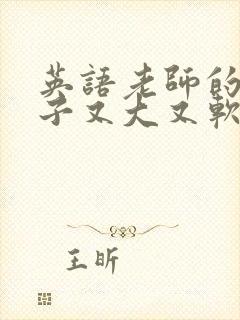 英語老師的
子又大又軟
王昕